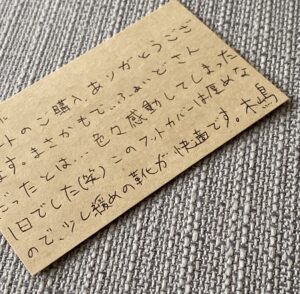 ートのご購入ありがとうござ
ます。まさかもで…ふぉどさん
だったとは… 色々感動してしまった
1日でした(笑) このフットカバーは厚めな
ので少し緩めの靴が快適です。木島